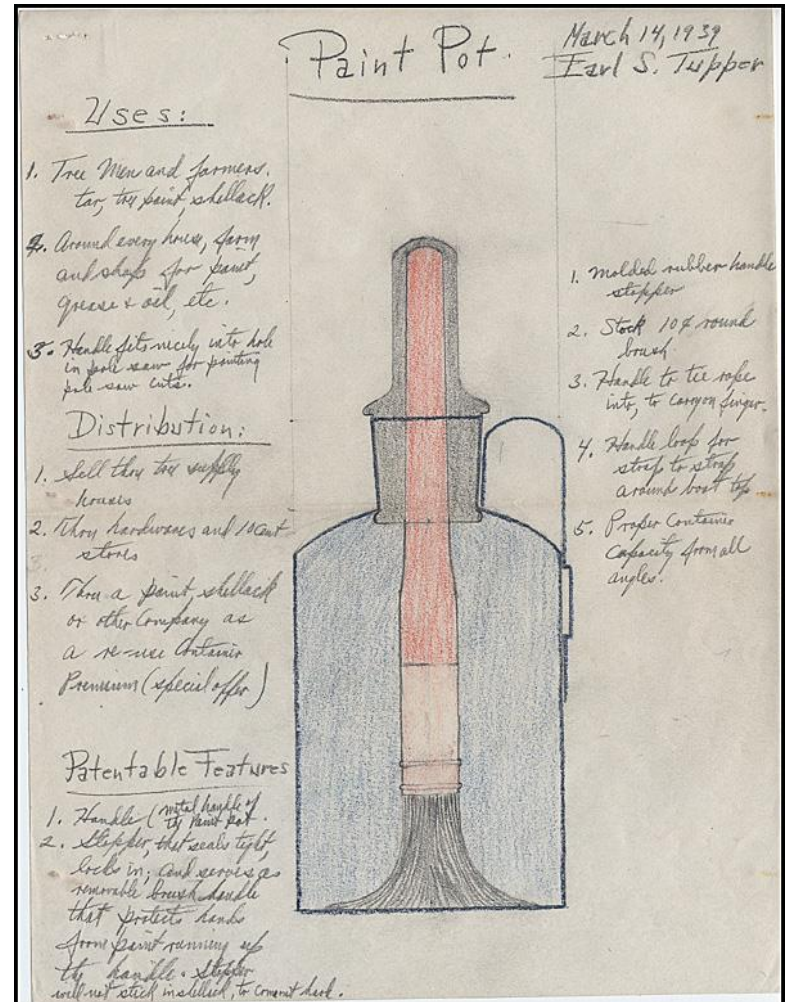 Paint Pot.
March 14, 1939
Earl S. Tupper
Uses:
1. Tree Men and farmers.
tar, tree paint, shellack.
2. Around every house, farm
and shop for paint,
grease & oil, etc.
3. Handle fits nicely into hole
in pole saw for painting
pole saw cuts.
Distribution:
1. Sell thru tree supply
houses
2. Thru hardwares and 10 cent
stores
3. Thru a paint, shellack
or other Company as
a re-use Container
Premium (special offer)
Patentable Features
1. Handle (metal handle of
the paint pot.
2. Stopper, that seals tight,
locks in; and serves as
removable brush handle
that protects hands
from paint running up
the handle. Stopper
will not stick in shellack, to
1. Molded rubber handle
stopper
2. Stock 10¢ round
brush
3. Handle to tie rope
into, to carry on finger.
4. Handle loop for
strap to strap
around boot top
5. Proper Container
Capacity from all
angles.